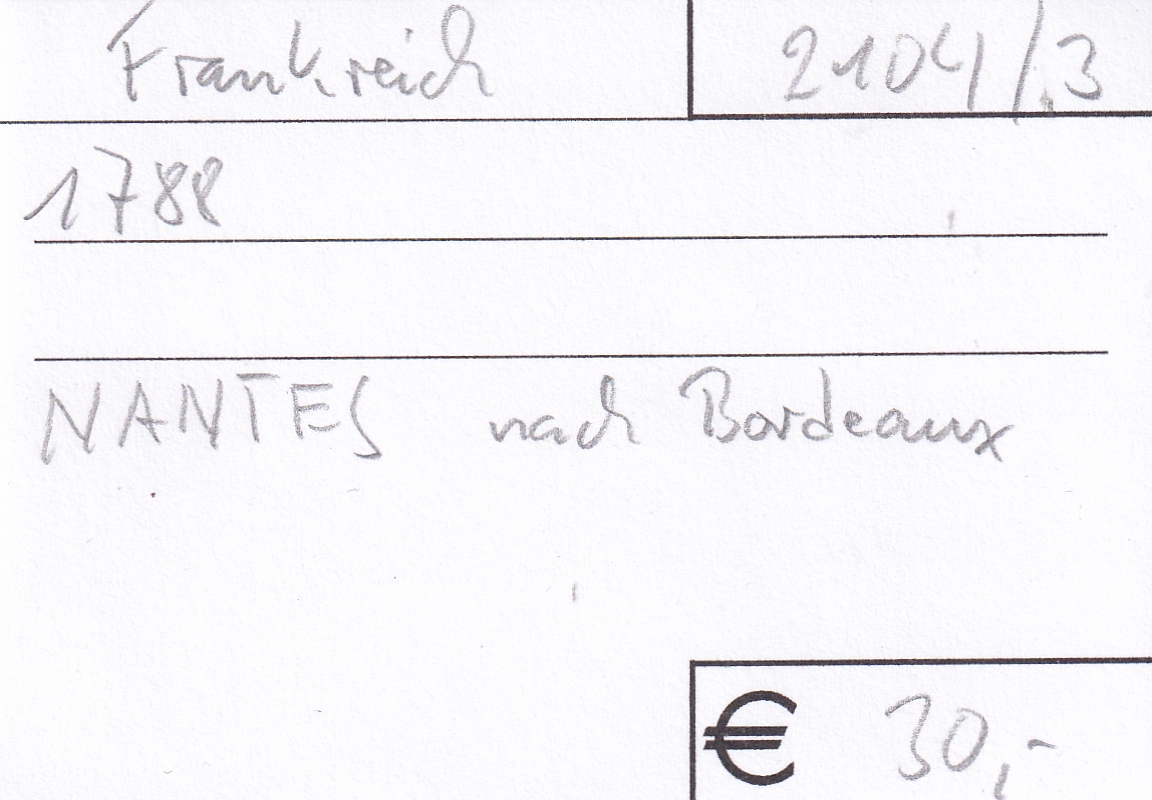 Frankreich 2104/3
1788
NANTES nach Bordeaux
€ 30,-